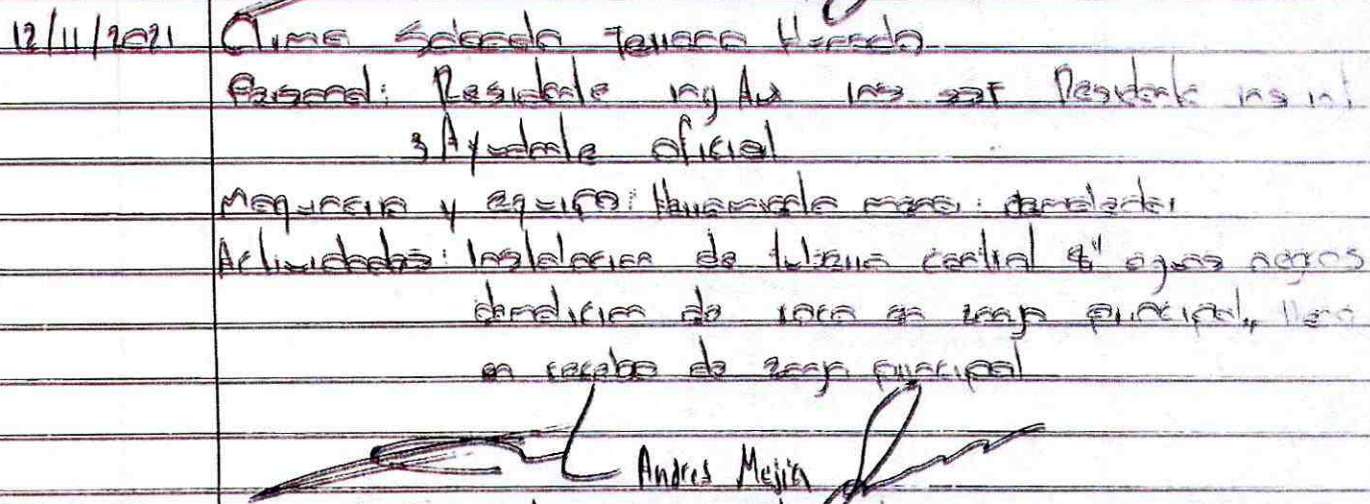 12/11/2021 Clima Soleado Terreno Humedo
Personal: Residente ing Aux ing sst Residente ing
3 Ayudante oficial
Maquinaria y equipo: Herramienta manual demoledor
Actividades: Instalacion de tuberia central 8" aguas negras
demolicion de roca en zanja principal,
en recebo de zanja principal
Andres Mejia